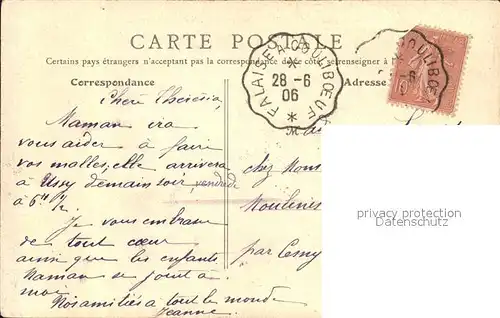 CARTE POSTALE
Certains pays étrangers n'acceptant pas la correspondance de ce côté, se renseigner à la
Correspondance
Adresse
FALAISE A COULIBŒUF
28 - 6
06
OULIBŒ
Chère Thérésia,
Maman ira
vous aider à faire
vos malles, elle arrivera
à Ussy demain soir, vendredi
à 6h ½
Je vous embrasse
de tout cœur
ainsi que les enfants
Maman se joint à
moi
Nos amitiés à tout le monde
Jeanne
chez Mons
Moulines
par Cesny
privacy protection
Datenschutz